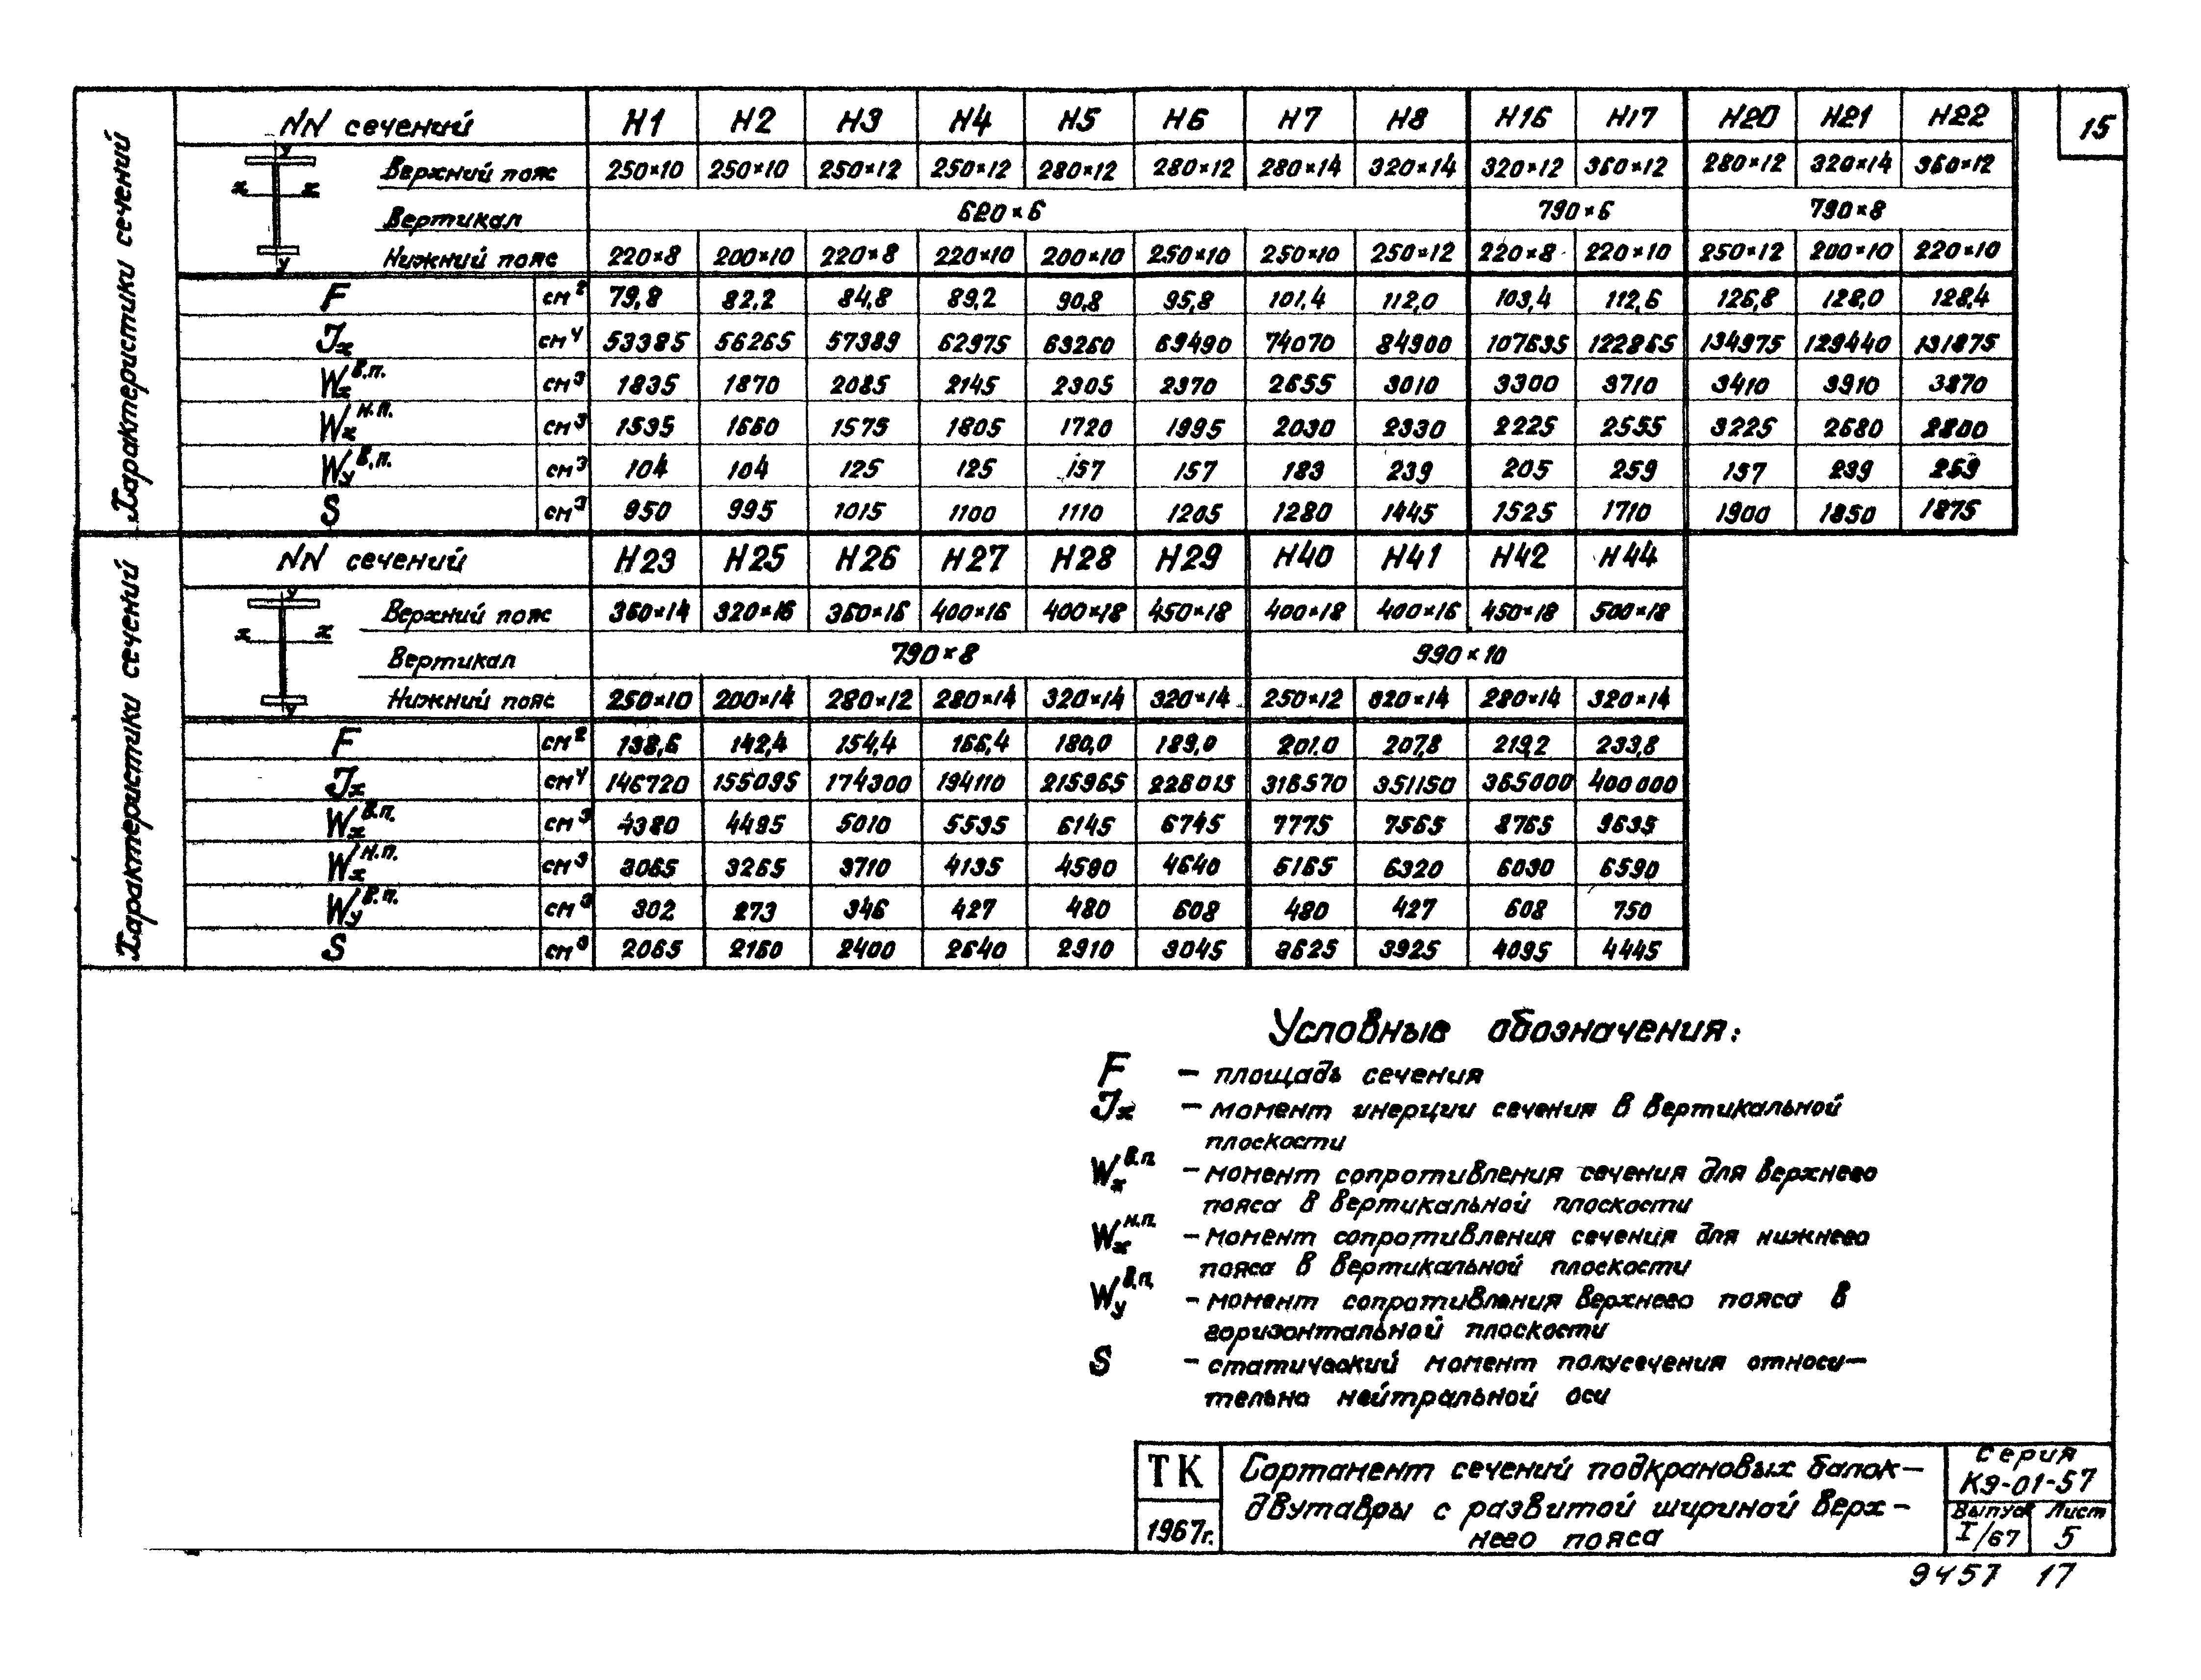 15
Характеристики сечений
NN сечений Н1 Н2 Н3 Н4 Н5 Н6 Н7 Н8 Н16 Н17 Н20 Н21 Н22
Верхний пояс 250×10 250×10 250×12 250×12 280×12 280×12 280×14 320×14 320×12 360×12 280×12 320×14 360×12
Вертикал 620×6 790×6 790×8
Нижний пояс 220×8 200×10 220×8 220×10 200×10 250×10 250×10 250×12 220×8 220×10 250×12 200×10 220×10
у х х у
F см² 79,8 82,2 84,8 89,2 90,8 95,8 101,4 112,0 103,4 112,6 126,8 128,0 128,4
Jх см⁴ 53385 56265 57389 62975 63260 69490 74070 84900 107635 122865 134975 129440 131875
Wх в.п. см³ 1835 1870 2085 2145 2305 2370 2655 3010 3300 3710 3410 3910 3870
Wх н.п. см³ 1535 1660 1575 1805 1720 1995 2030 2330 2225 2555 3225 2680 2800
Wу в.п. см³ 104 104 125 125 157 157 183 239 205 259 157 239 259
S см³ 950 995 1015 1100 1110 1205 1280 1445 1525 1710 1900 1850 1875
Характеристики сечений
NN сечений Н23 Н25 Н26 Н27 Н28 Н29 Н40 Н41 Н42 Н44
Верхний пояс 360×14 320×16 360×16 400×16 400×18 450×18 400×18 400×16 450×18 500×18
Вертикал 790×8 990×10
Нижний пояс 250×10 200×14 280×12 280×14 320×14 320×14 250×12 320×14 280×14 320×14
у х х у
F см² 138,6 142,4 154,4 166,4 180,0 189,0 201.0 207,8 219,2 233,8
Jх см⁴ 146720 155095 174300 194110 215965 226015 316570 351150 365000 400000
Wх в.п. см³ 4380 4495 5010 5535 6145 6745 7775 7565 8765 9635
Wх н.п. см³ 3065 3265 3710 4135 4590 4640 5165 6320 6030 6590
Wу в.п. см³ 302 273 346 427 480 608 480 427 608 750
S см³ 2065 2160 2400 2640 2910 3045 3625 3925 4095 4445
Условные обозначения:
F – площадь сечения
Jх – момент инерции сечения в вертикальной
плоскости
Wх в.п. – момент сопротивления сечения для верхнего
пояса в вертикальной плоскости
Wх н.п. – момент сопротивления сечения для нижнего
пояса в вертикальной плоскости
Wу в.п. – момент сопротивления верхнего пояса в
горизонтальной плоскости
S – статический момент полусечения относи–
тельно нейтральной оси
ТК
1967г.
Сортамент сечений подкрановых балок–
двутавры с развитой шириной верх–
него пояса
Серия
КЭ-01-57
Выпуск Лист
I/67 5
9457 17